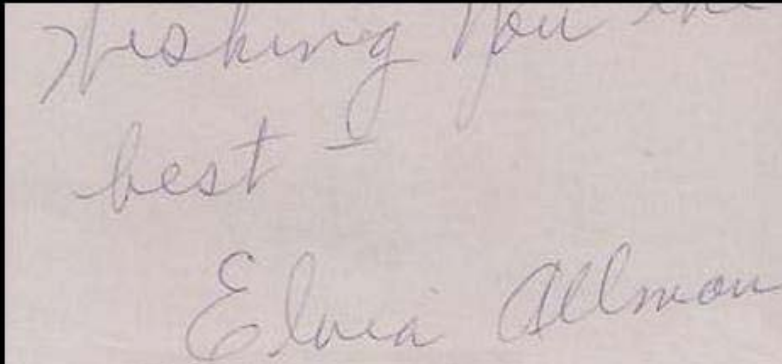 Wishing you the
best –
Elvia Allman